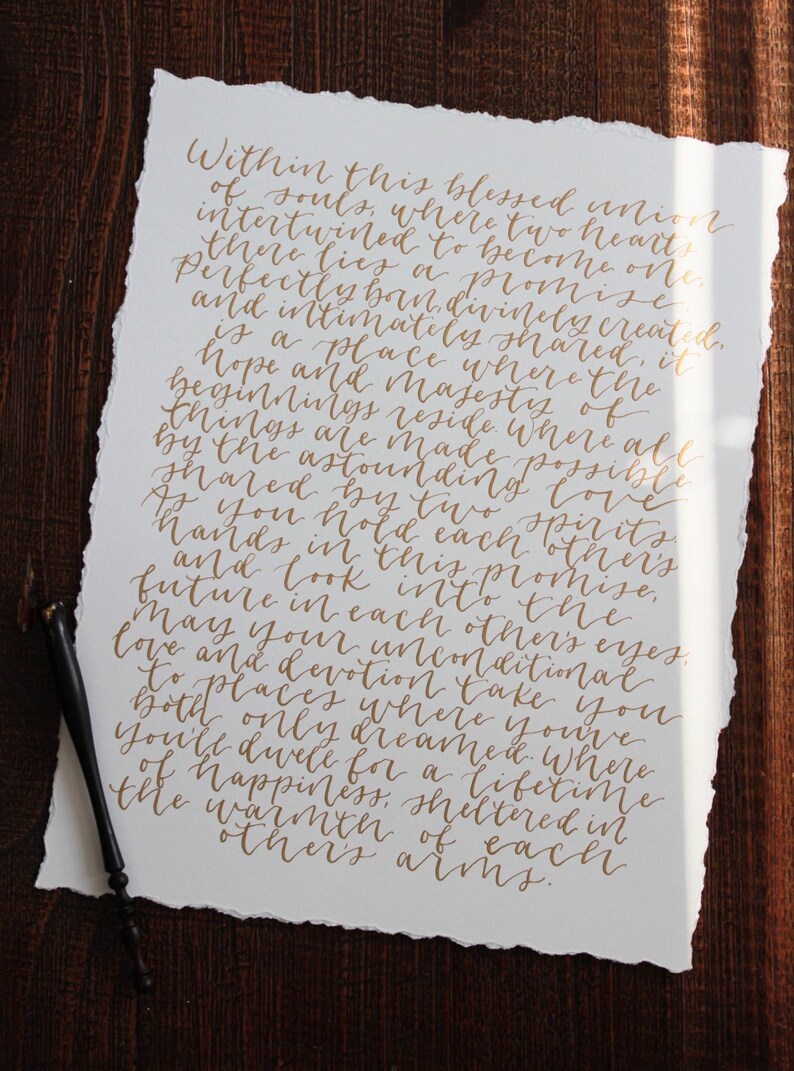 Within this blessed union
of souls, where two hearts
intertwined to become one,
there lies a promise.
Perfectly born, divinely created,
and intimately shared, it
is a place where the
hope and majesty of
beginnings reside. Where all
things are made possible
by the astounding love
shared by two spirits.
As you hold each other's
hands in this promise,
and look into the
future in each other's eyes,
may your unconditional
love and devotion take you
to places where you've
both only dreamed. Where
you'll dwell for a lifetime
of happiness, sheltered in
the warmth of each
other's arms.